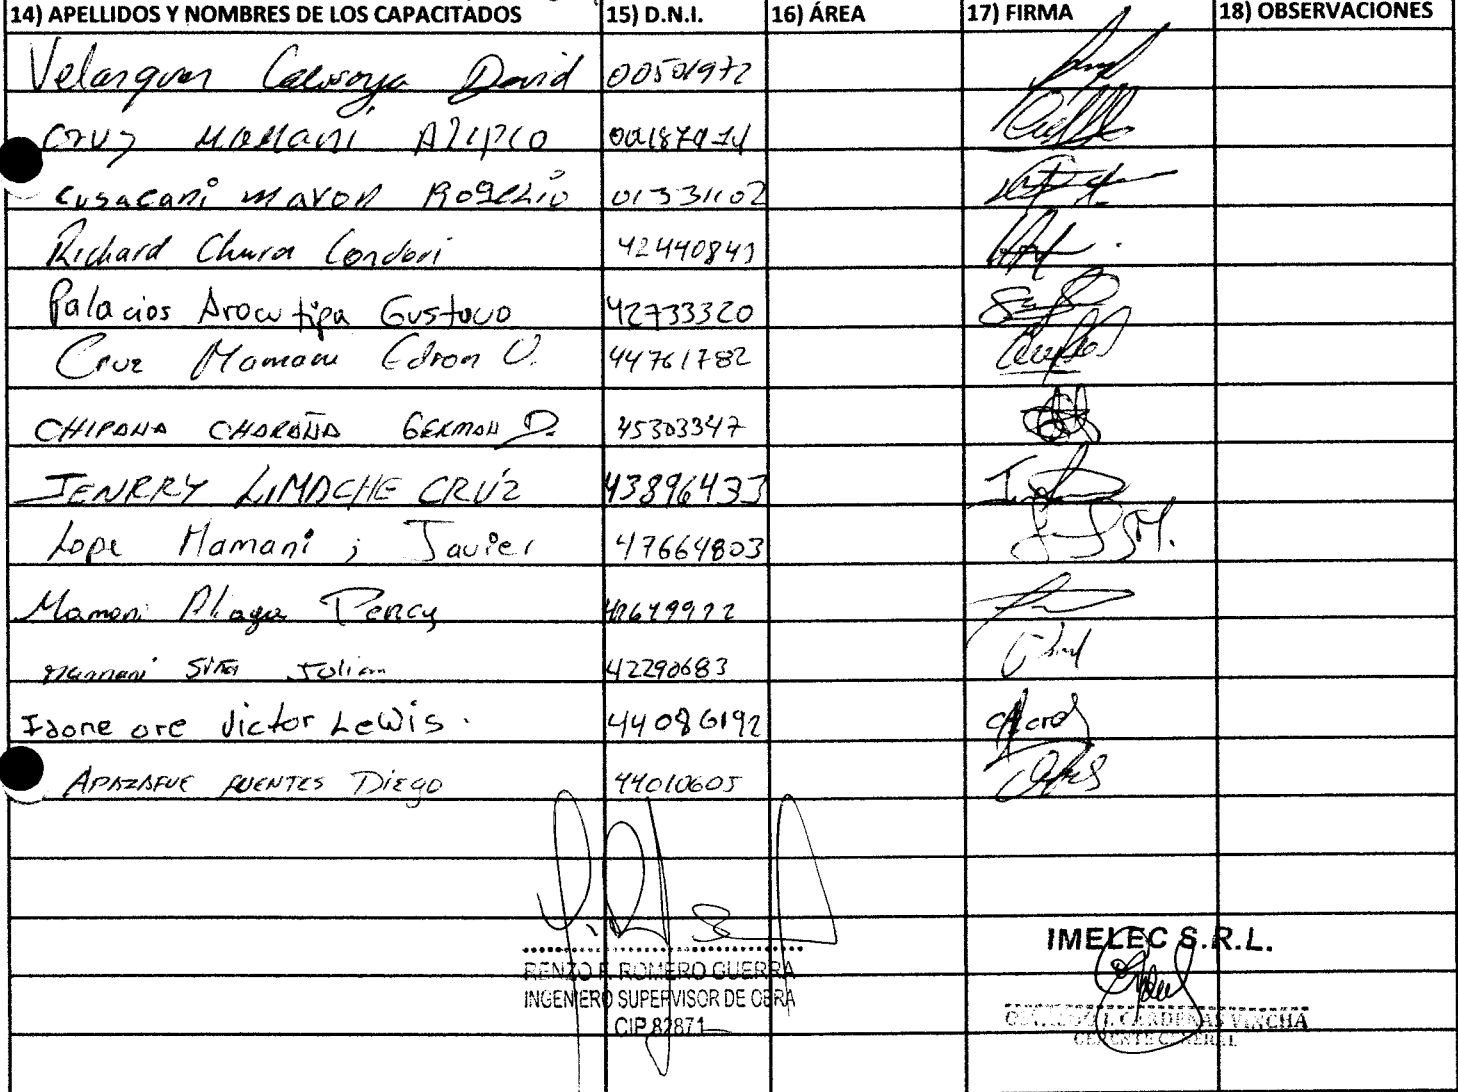 14) APELLIDOS Y NOMBRES DE LOS CAPACITADOS 15) D.N.I. 16) ÁREA 17) FIRMA 18) OBSERVACIONES
David 00501972
Cruz Mamani Alipio
Cusacani mayon Rogelio 01331102
Richard Chura Condori 42440841
Palacios Arocutipa Gustavo 42733320
Cruz Mamani Edron V. 44761782
CHIPANA CHARAÑA GERMAN D. 45303347
JENRRY LIMACHE CRUZ 43896433
Lope Mamani ; Javier 47664803
Mamani Aliaga Percy
Mamani Julian 42290683
Idone ore Victor Lewis. 44086192
FUENTES Diego 44010605
RENZO F. ROMERO GUERRA
INGENIERO SUPERVISOR DE OBRA
CIP 82871
IMELEC S.R.L.
CARDENAS VINCHA
GERENTE GENERAL